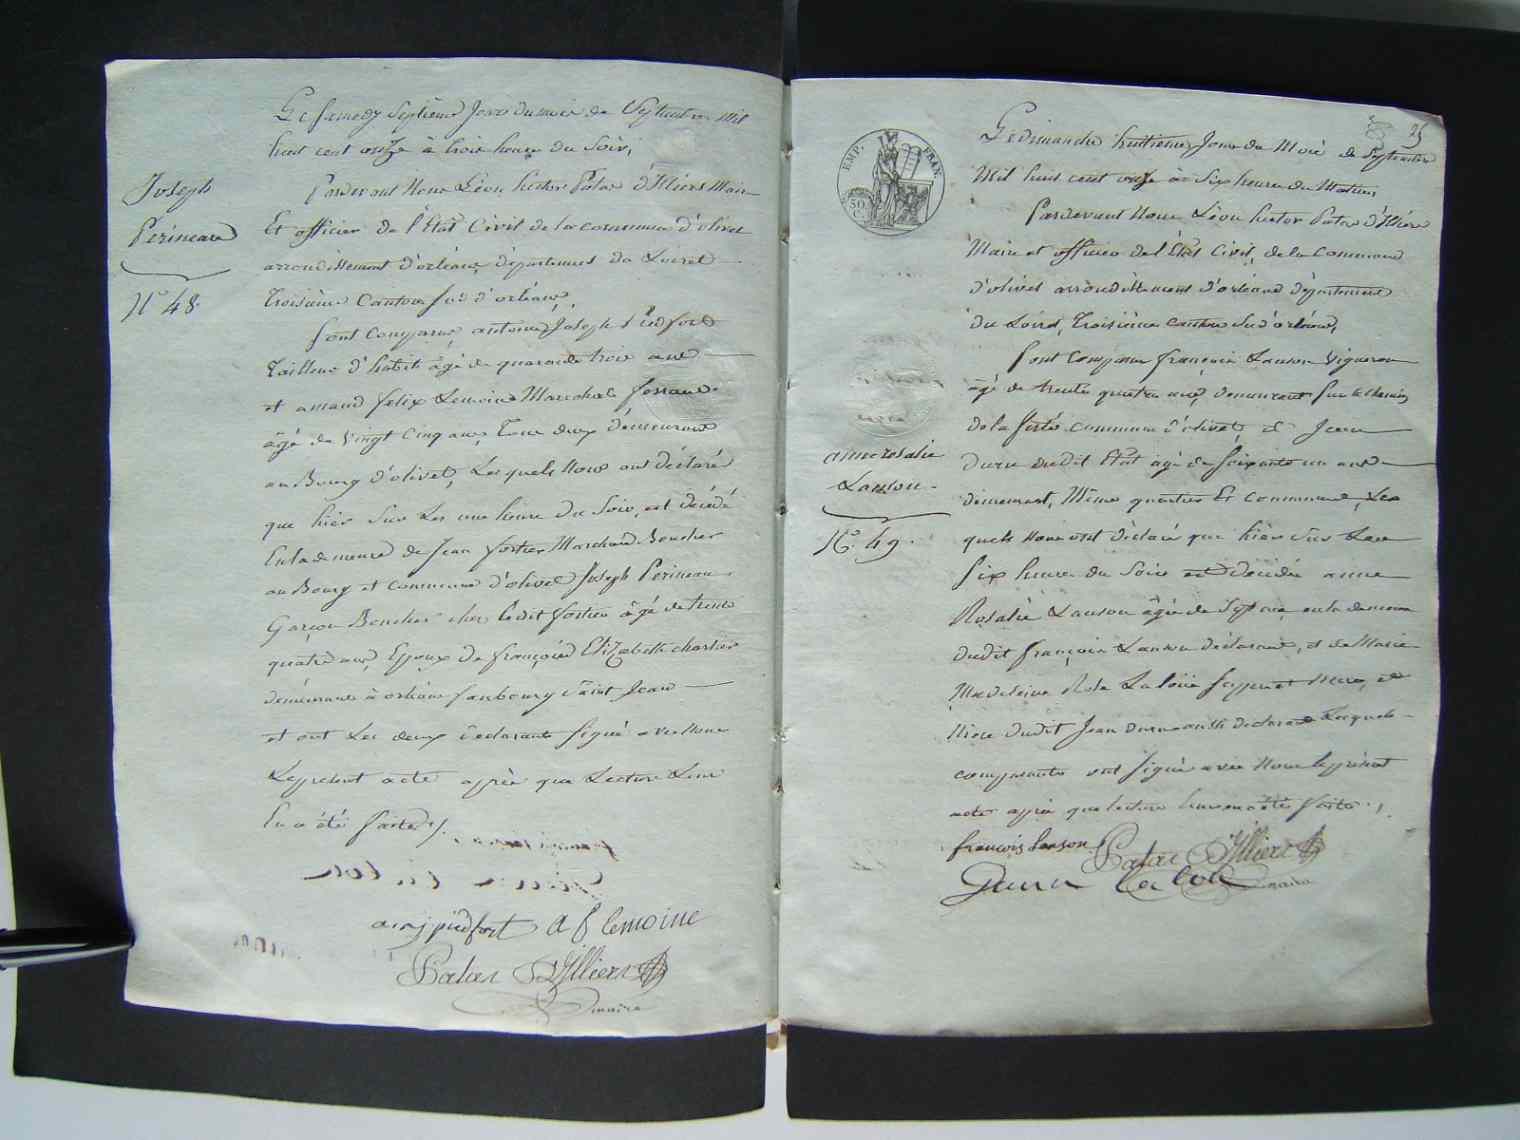 Le samedy Septieme Jour du mois de Septembre mil
huit cent onze à trois heures du Soir,
Joseph
Perineau
N° 48.
Pardevant Nous Léon hector Patas d'Illiers Maire
Et officier de l'État Civil de la commune d'olivet
arrondissement d'orléans, département du Loiret
troisieme Canton Sud d'orléans,
Sont Comparus antoine Joseph piedfort
Tailleur d'habits âgé de quarante trois ans
et amand felix Lemoine Marechal ferrant
âgé de vingt cinq ans, tous deux demeurant
au Bourg d'olivet, Lesquels Nous ont déclaré
que hier Sur Les une heure du Soir, est décédé
En la demeure de Jean fortier Marchand Boucher
au Bourg et commune d'olivet Joseph Perineau
Garçon Boucher chez ledit fortier âgé de trente
quatre ans, Epoux de françoise Elizabeth chartier
demeurant à orléans faubourg Saint Jean
et ont Les deux déclarants Signé avec Nous
Le present acte après que Lecture Leur
En a été faite ./.
a j piedfort a f lemoine
Patas D'Illiers
maire
25
EMP. FRAN.
50
C.
Le dimanche huitieme Jour du Mois de Septembre
Mil huit cent onze à Six heures du Matin,
Pardevant Nous Léon hector Patas d'Illiers
Maire et officier de l'État Civil, de la Commune
d'olivet arrondissement d'orléans département
du Loiret, troisieme canton Sud d'orléans,
Sont Comparus françois Lanson Vigneron
âgé de trente quatre ans, demeurant Sur le chemin
de la ferté commune d'olivet, et Jean
dudit État âgé de Soixante un ans
anne rosalie
Lanson.
N° 49.
demeurant, Même quartier Et commune, Les
quels Nous ont déclaré que hier Sur Les
Six heures du Soir est décédée anne
Rosalie Lanson âgée de Sept ans, en la demeure
dudit françois Lanson déclarant, et de Marie
Madeleine Rose Ses pere et mere, et
Niece dudit Jean aussi declarant Lesquels
comparants ont Signé avec Nous le présent
acte après que lecture leur en a été faite ./.
francois lanson Patas D'Illiers
maire